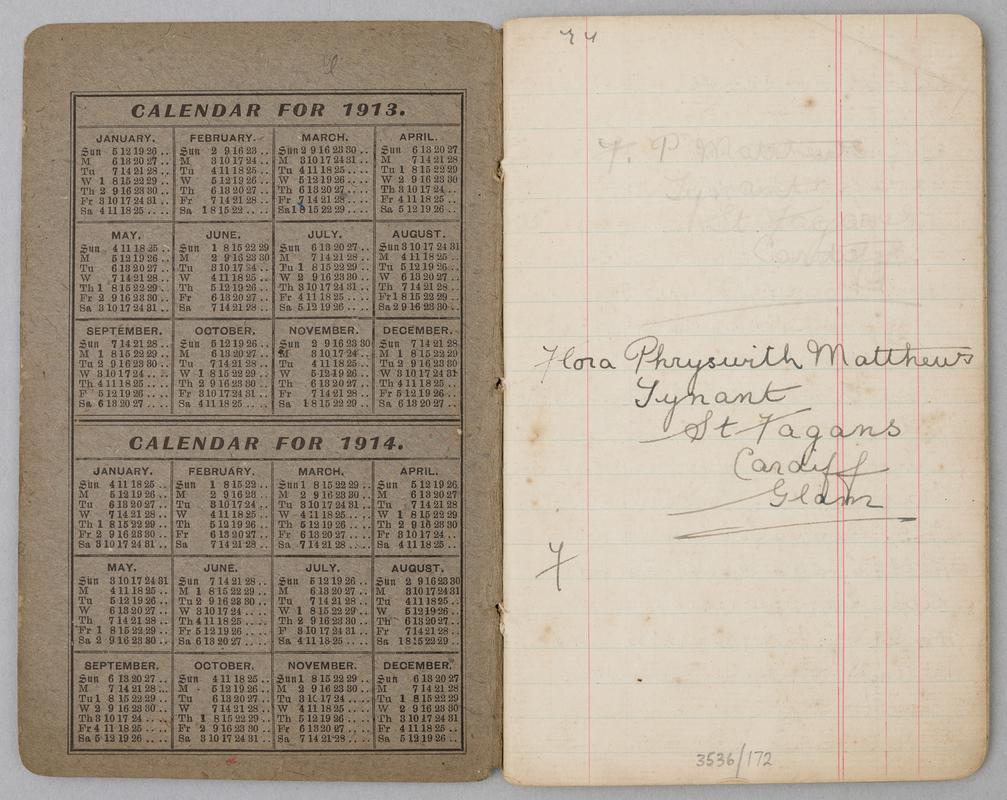 CALENDAR FOR 1913.
JANUARY.
Sun 5 12 19 26 ..
M 6 13 20 27 ..
Tu 7 14 21 28 ..
W 1 8 15 22 29 ..
Th 2 9 16 23 30 ..
Fr 3 10 17 24 31 ..
Sa 4 11 18 25 ..
FEBRUARY.
Sun 2 9 16 23 ..
M 3 10 17 24 ..
Tu 4 11 18 25 ..
W 5 12 19 26 ..
Th 6 13 20 27 ..
Fr 7 14 21 28 ..
Sa 1 8 15 22 ....
MARCH.
Sun 2 9 16 23 30 ..
M 3 10 17 24 31 ..
Tu 4 11 18 25 ..
W 5 12 19 26 ..
Th 6 13 20 27 ..
Fr 7 14 21 28 ..
Sa 1 8 15 22 29 ..
APRIL.
Sun 6 13 20 27
M 7 14 21 28
Tu 1 8 15 22 29
W 2 9 16 23 30
Th 3 10 17 24 ..
Fr 4 11 18 25 ..
Sa 5 12 19 26 ..
MAY.
Sun 4 11 18 25 ..
M 5 12 19 26 ..
Tu 6 13 20 27 ..
W 7 14 21 28 ..
Th 1 8 15 22 29 ..
Fr 2 9 16 23 30 ..
Sa 3 10 17 24 31 ..
JUNE.
Sun 1 8 15 22 29
M 2 9 16 23 30
Tu 3 10 17 24 ..
W 4 11 18 25 ..
Th 5 12 19 26 ..
Fr 6 13 20 27 ..
Sa 7 14 21 28 ..
JULY.
Sun 6 13 20 27 ..
M 7 14 21 28 ..
Tu 1 8 15 22 29 ..
W 2 9 16 23 30 ..
Th 3 10 17 24 31 ..
Fr 4 11 18 25 ..
Sa 5 12 19 26 ..
AUGUST.
Sun 3 10 17 24 31
M 4 11 18 25 ..
Tu 5 12 19 26 ..
W 6 13 20 27 ..
Th 7 14 21 28 ..
Fr 1 8 15 22 29 ..
Sa 2 9 16 23 30 ..
SEPTEMBER.
Sun 7 14 21 28 ..
M 1 8 15 22 29 ..
Tu 2 9 16 23 30 ..
W 3 10 17 24 ....
Th 4 11 18 25 ....
F 5 12 19 26 ....
Sa 6 13 20 27 ....
OCTOBER.
Sun 5 12 19 26 ..
M 6 13 20 27 ..
Tu 7 14 21 28 ..
W 1 8 15 22 29 ..
Th 2 9 16 23 30 ..
Fr 3 10 17 24 31 ..
Sa 4 11 18 25 ..
NOVEMBER.
Sun 2 9 16 23 30
M 3 10 17 24 ..
Tu 4 11 18 25 ..
W 5 12 19 26 ..
Th 6 13 20 27 ..
Fr 7 14 21 28 ..
Sa 1 8 15 22 29 ..
DECEMBER.
Sun 7 14 21 28 ..
M 1 8 15 22 29 ..
Tu 2 9 16 23 30 ..
W 3 10 17 24 31
Th 4 11 18 25 ..
Fr 5 12 19 26 ..
Sa 6 13 20 27 ..
CALENDAR FOR 1914.
JANUARY.
Sun 4 11 18 25 ..
M 5 12 19 26 ..
Tu 6 13 20 27 ..
W 7 14 21 28 ..
Th 1 8 15 22 29 ..
Fr 2 9 16 23 30 ..
Sa 3 10 17 24 31 ..
FEBRUARY.
Sun 1 8 15 22 ..
M 2 9 16 23 ..
Tu 3 10 17 24 ..
W 4 11 18 25 ..
Th 5 12 19 26 ..
Fr 6 13 20 27 ..
Sa 7 14 21 28 ..
MARCH.
Sun 1 8 15 22 29 ..
M 2 9 16 23 30 ..
Tu 3 10 17 24 31 ..
W 4 11 18 25 ....
Th 5 12 19 26 ....
Fr 6 13 20 27 ....
Sa 7 14 21 28 ....
APRIL.
Sun 5 12 19 26
M 6 13 20 27
Tu 7 14 21 28
W 1 8 15 22 29
Th 2 9 16 23 30
Fr 3 10 17 24 ..
Sa 4 11 18 25 ..
MAY.
Sun 3 10 17 24 31
M 4 11 18 25 ..
Tu 5 12 19 26 ..
W 6 13 20 27 ..
Th 7 14 21 28 ..
Fr 1 8 15 22 29 ..
Sa 2 9 16 23 30 ..
JUNE.
Sun 7 14 21 28 ..
M 1 8 15 22 29 ..
Tu 2 9 16 23 30 ..
W 3 10 17 24 ....
Th 4 11 18 25 ....
Fr 5 12 19 26 ....
Sa 6 13 20 27 ....
JULY.
Sun 5 12 19 26 ..
M 6 13 20 27 ..
Tu 7 14 21 28 ..
W 1 8 15 22 29 ..
Th 2 9 16 23 30 ..
F 3 10 17 24 31 ..
Sa 4 11 18 25 ....
AUGUST.
Sun 2 9 16 23 30
M 3 10 17 24 31
Tu 4 11 18 25 ..
W 5 12 19 26 ..
Th 6 13 20 27 ..
Fr 7 14 21 28 ..
Sa 1 8 15 22 29 ..
SEPTEMBER.
Sun 6 13 20 27
M 7 14 21 28 ..
Tu 1 8 15 22 29 ..
W 2 9 16 23 30 ..
Th 3 10 17 24 ....
Fr 4 11 18 25 ....
Sa 5 12 19 26 ....
OCTOBER.
Sun 4 11 18 25 ..
M 5 12 19 26 ..
Tu 6 13 20 27 ..
W 7 14 21 28 ..
Th 1 8 15 22 29 ..
Fr 2 9 16 23 30 ..
Sa 3 10 17 24 31 ..
NOVEMBER.
Sun 1 8 15 22 29 ..
M 2 9 16 23 30 ..
Tu 3 10 17 24 ..
W 4 11 18 25 ..
Th 5 12 19 26 ..
Fr 6 13 20 27 ..
Sa 7 14 21 28 ..
DECEMBER.
Sun 6 13 20 27
M 7 14 21 28
Tu 1 8 15 22 29
W 2 9 16 23 30
Th 3 10 17 24 31
Fr 4 11 18 25 ..
Sa 5 12 19 26 ..
F. P Matthews
Tynant
St Fagans
Cardiff
Flora Phryswith Matthews
Tynant
St Fagans
Cardiff
Glam
F
3536/172